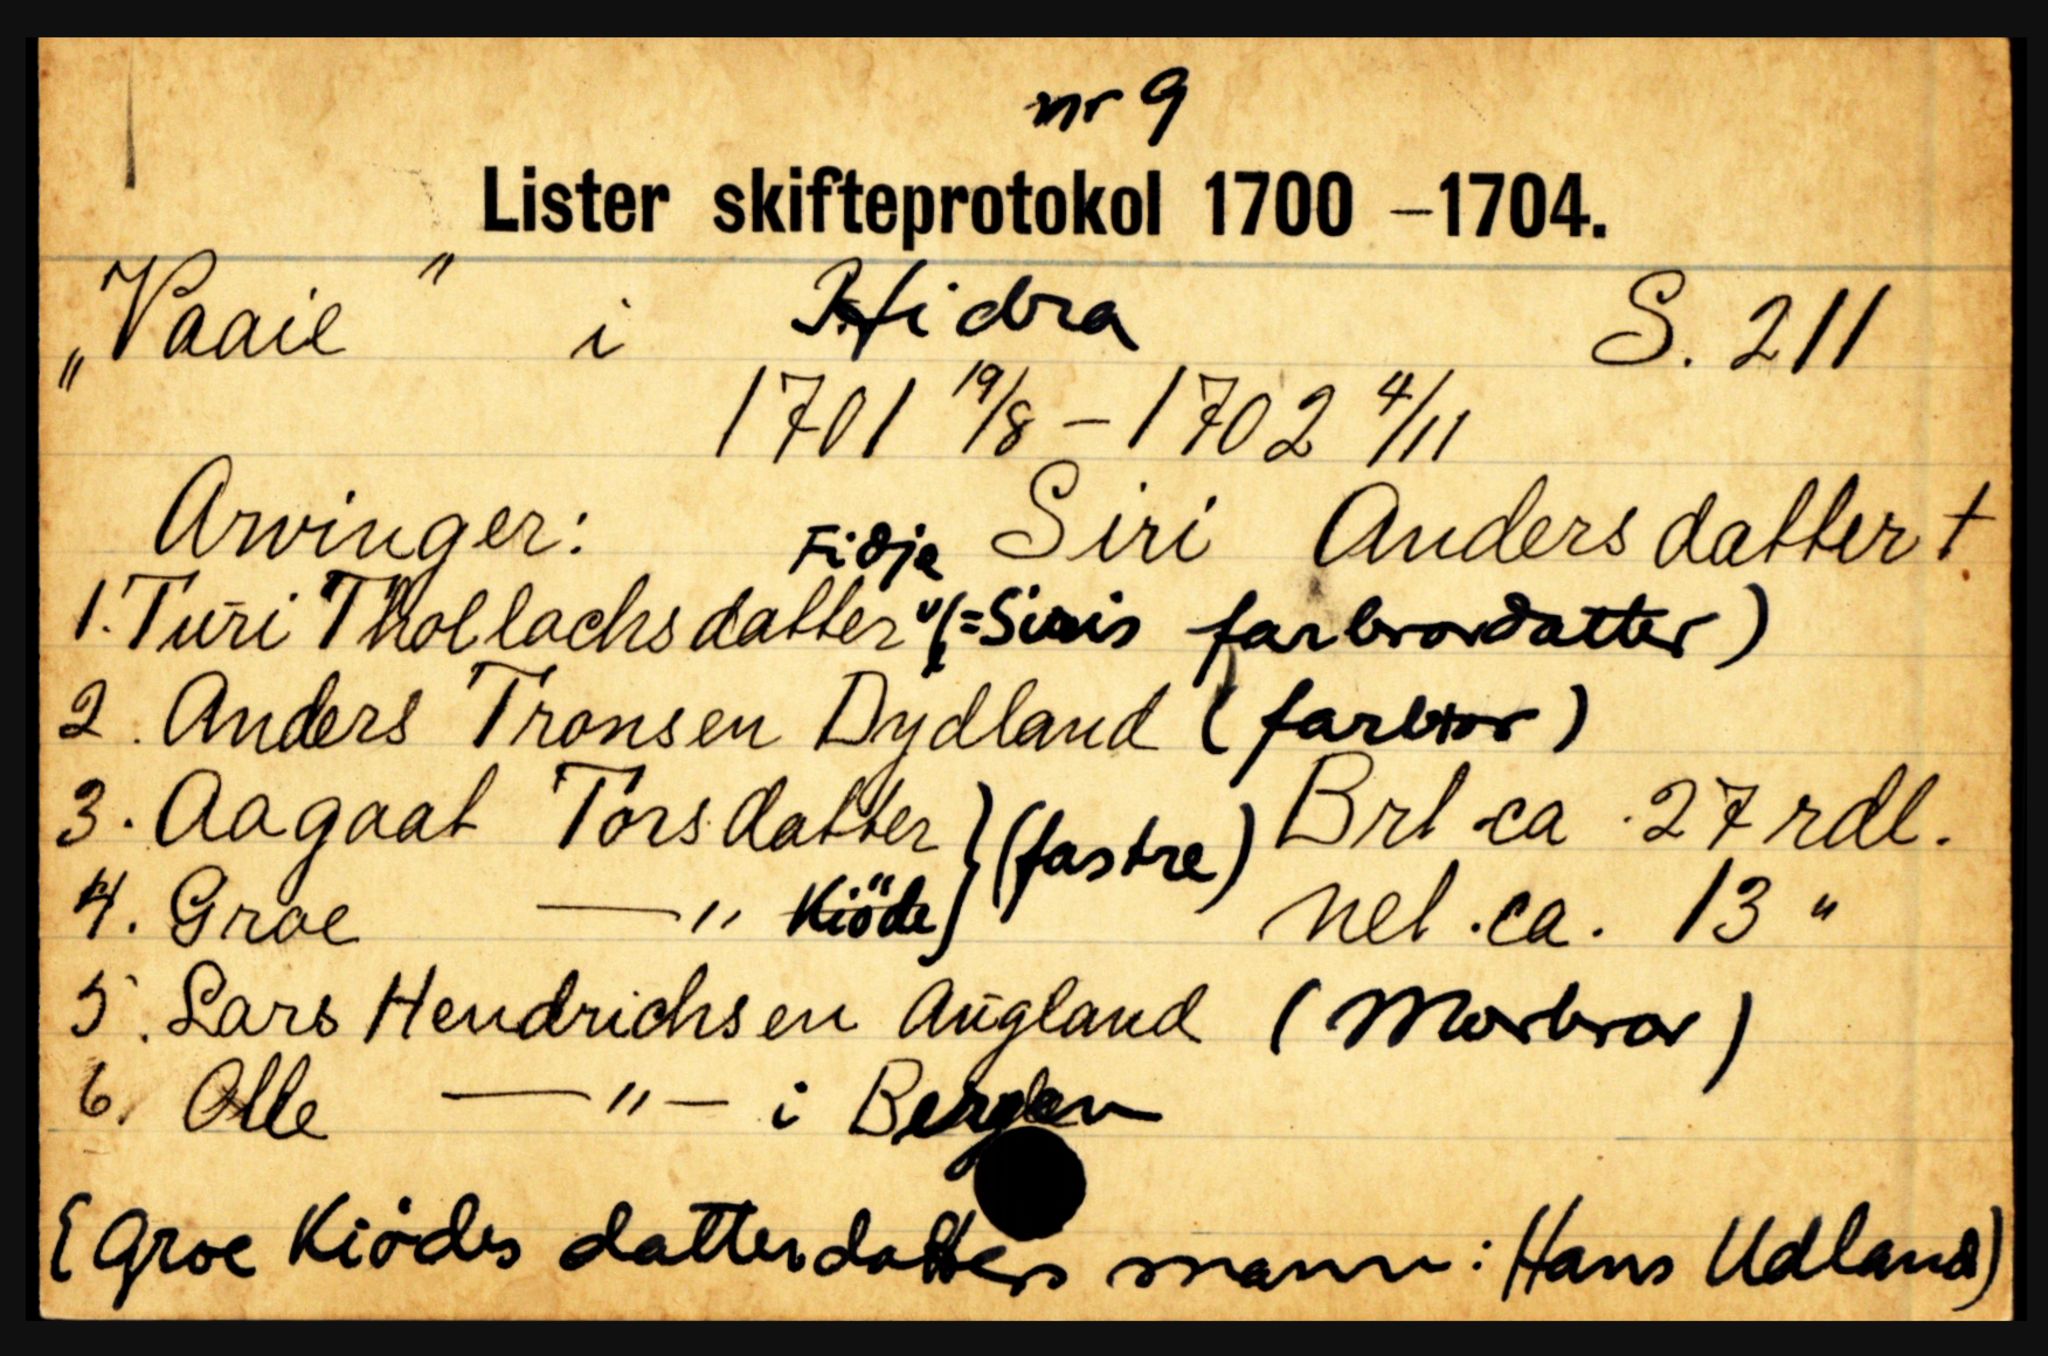 nr 9
Lister skifteprotokol 1700 –1704.
„Vaaie" i Hidra S. 211
1701 19/8 – 1702 4/11
Arvinger: Siri Andersdatter †
1. Turi Thollachsdatter Fidje (= Siris farbrordatter)
2. Anders Tronsen Dydland (farbror)
3. Aagaat Torsdatter } (fastre) Brt ca. 27 rdl.
4. Groe —"— Kiöde } net. ca. 13 "
5. Lars Hendrichsen Augland (Morbror)
6. Olle —"— i Bergen
(Groe Kiödes datterdatters mann: Hans Udland)